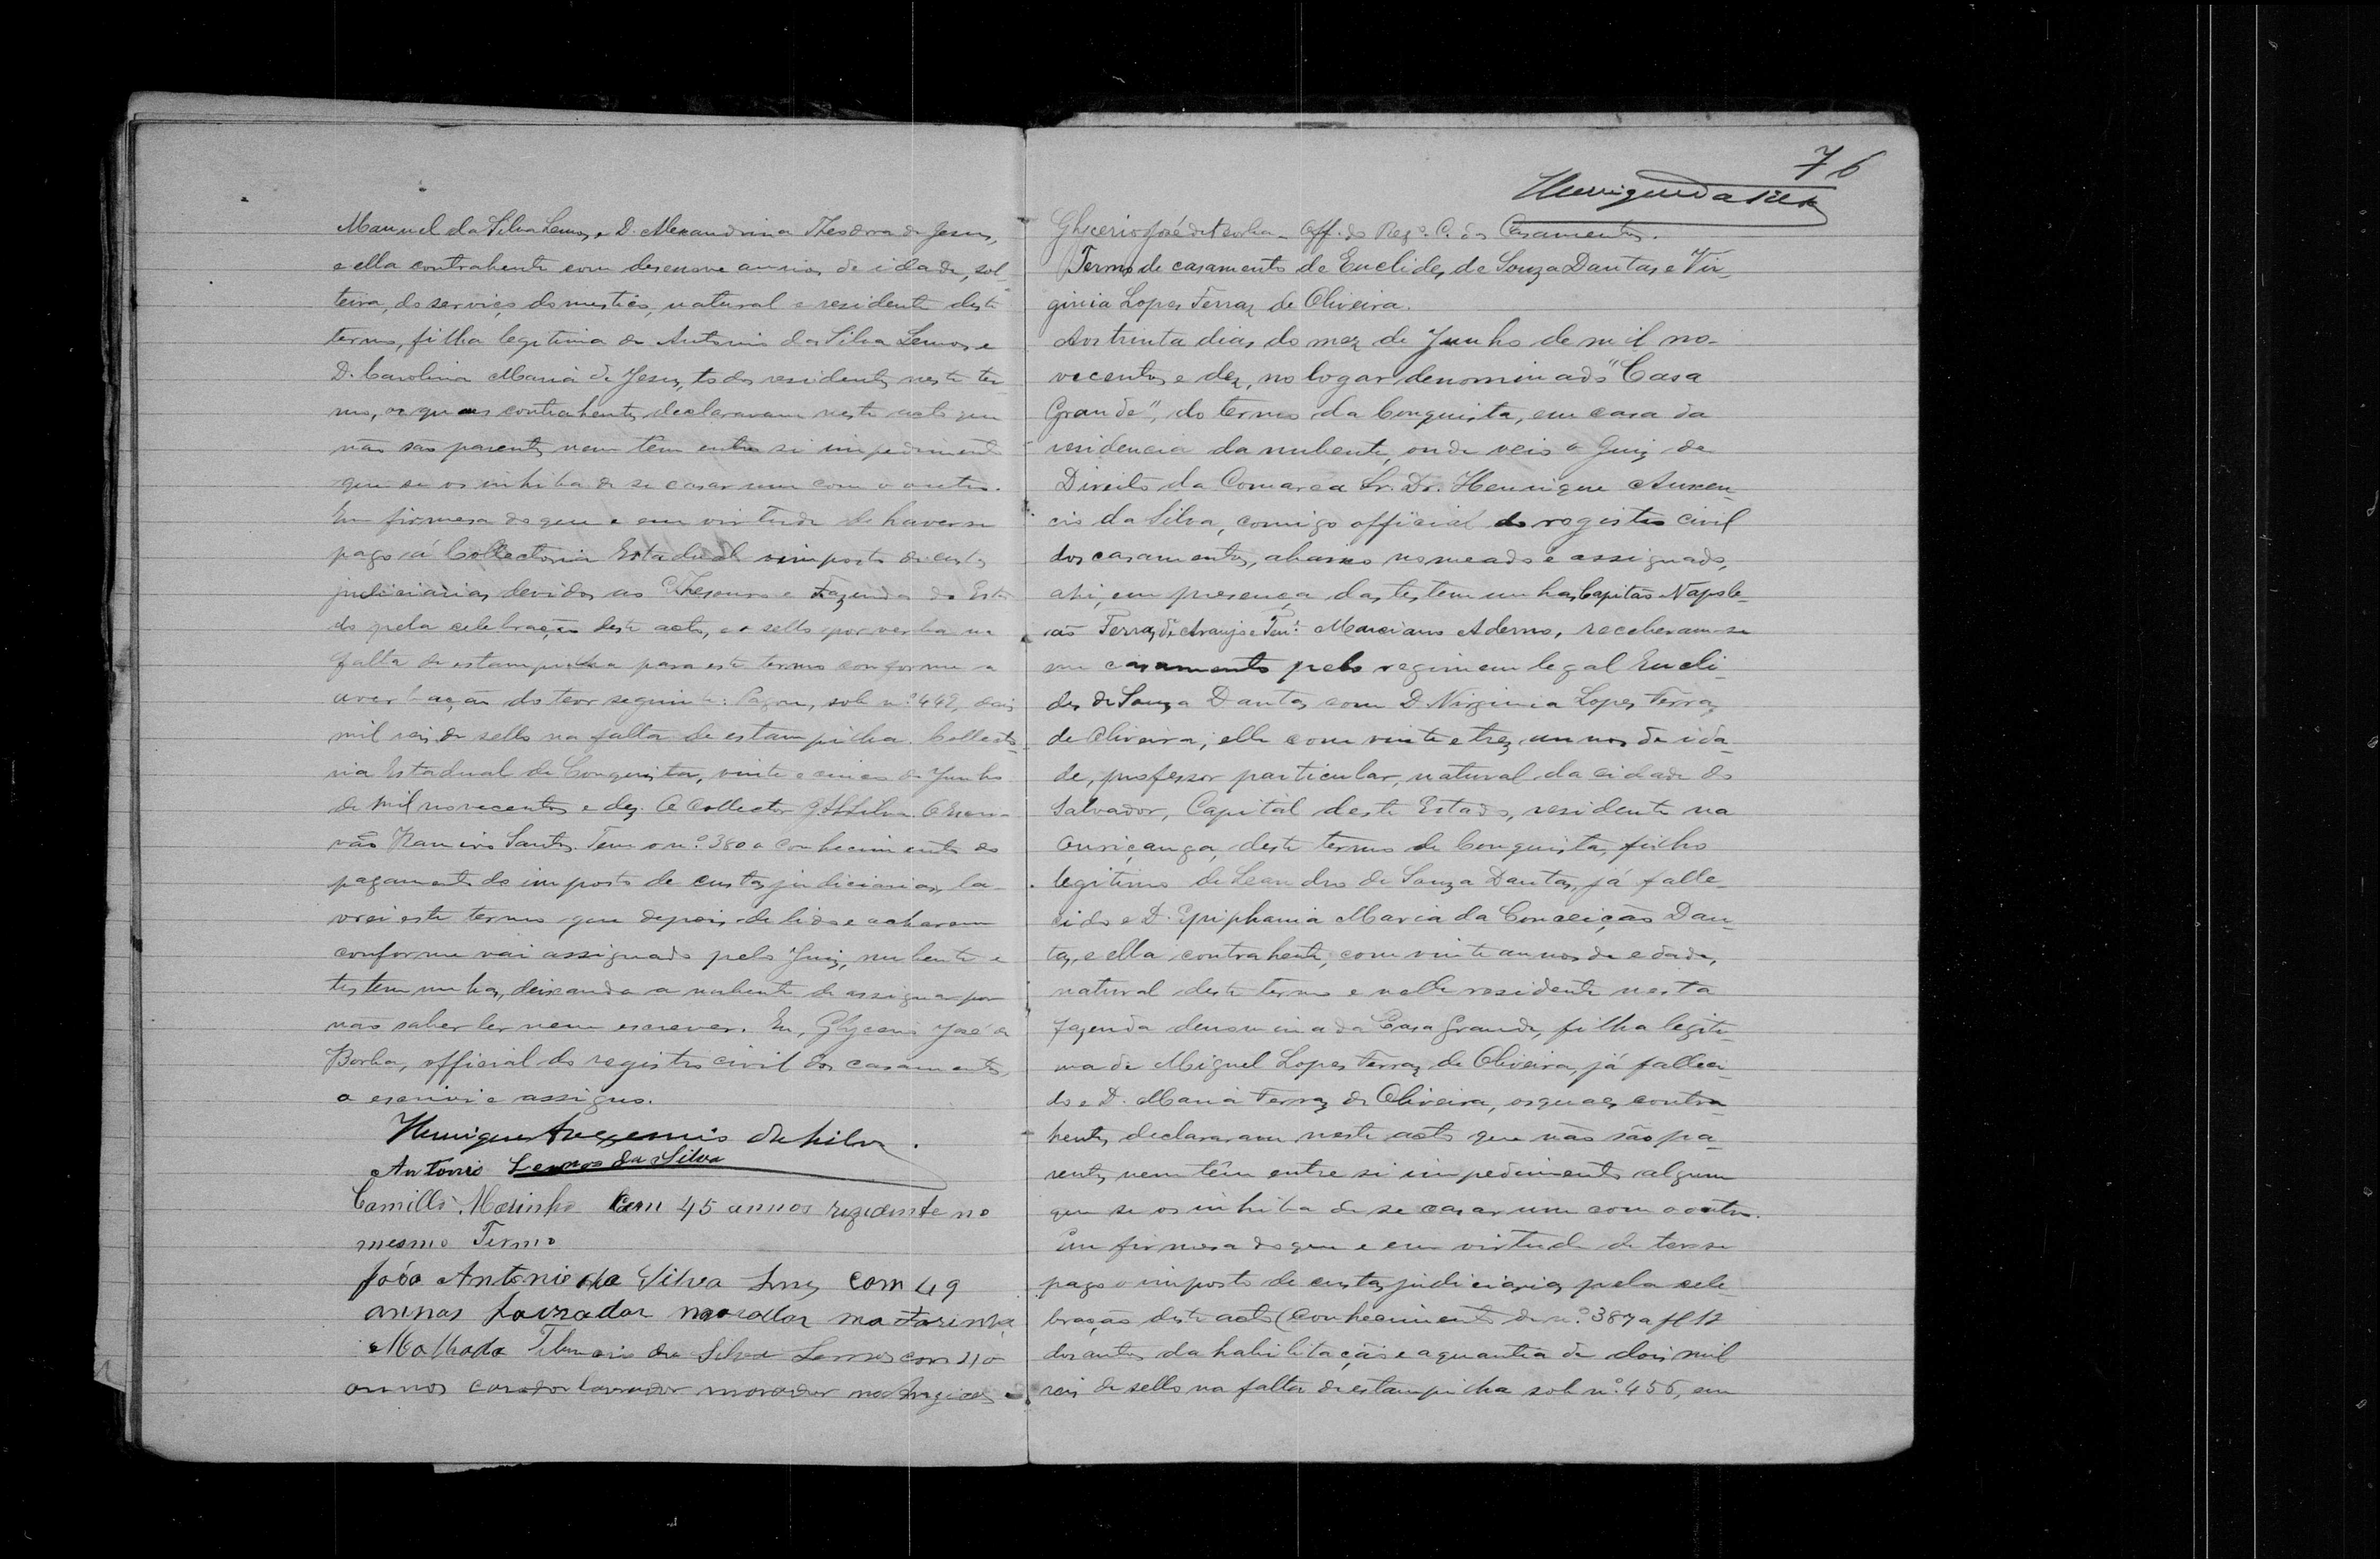 Manuel da Silva Lemos, e D. Alexandrina Theodora de Jesus,
e ella contrahente com desenove annos de idade, sol-
teira, do serviço domestico, natural e residente deste
termo, filha legitima de Antonio da Silva Lemos e
D. Carolina Maria de Jesus, todos residentes neste ter-
mo, os quaes contrahentes declararam neste acto que
não são parentes nem tem entre si impedimento
que se os inhiba de se casar um com o outro.
Em firmesa do que e em virtude de haver-se
pago á Collectoria Estadual o imposto de custas
judiciarias devidos ao Thesouro e Fazenda do Esta-
do pela celebração deste acto, e o sello por verba na
falta de estampilha para este termo conforme a
averbação do teor seguinte: Pagou, sob nº 442, dois
mil reis de sello na falta de estampilha. Collecto-
ria Estadual de Conquista, vinte e cinco de Junho
de mil novecentos e dez. O Collector Silva. O Escri-
vão Ramiro Santos. Tem o nº 380 o conhecimento do
pagamento do imposto de custas judiciarias, la-
vrei este termo que depois de lido e acharem
conforme vai assignado pelo Juiz, nubente e
testemunhas, deixando a nubente de assignar por
não saber ler nem escrever. Eu, Glycerio José de
Borba, official do registro civil dos casamentos,
o escrivi e assigno.
Henrique Auxencio da Silva.
Antonio Lemos da Silva
Camillo Marinho Com 45 annos rezidente no
mesmo Termo
João Antonio da Silva com 49
annos Lavrador morador na
Malhada da Silva Lemos com 40
annos casado lavrador morador
76
Henrique da Silva
Glycerio José de Borba - Off. do Regº C. dos Casamentos.
Termo de casamento de Euclides de Souza Dantas e Vir-
ginia Lopes Ferraz de Oliveira.
Aos trinta dias do mez de Junho de mil no-
vecentos e dez, no logar denominado "Casa
Grande", do termo da Conquista, em casa da
residencia da nubente, onde veio o Juiz de
Direito da Comarca Sr. Dr. Henrique Auxen-
cio da Silva, comigo official do registro civil
dos casamentos, abaixo nomeado e assignado,
ahi, em presença das testemunhas Capitão Napole-
ão Ferraz de Araujo e Tente Marciano Aderno, receberam-se
em casamento pelo regimem legal Eucli-
des de Souza Dantas com D. Virginia Lopes Ferraz
de Oliveira; elle com vinte e trez annos de ida-
de, professor particular, natural da cidade do
Salvador, Capital deste Estado, residente na
Ouriçanga, deste termo de Conquista, filho
legitimo de Leandro de Souza Dantas, já falle-
cido e D. Epiphania Maria da Conceição Dan-
tas, e ella contrahente, com vinte annos de edade,
natural deste termo e nelle residente nesta
fazenda denominada Casa Grande, filha legiti-
ma de Miguel Lopes Ferraz de Oliveira, já falleci-
do e D. Maria Ferraz de Oliveira, os quaes contra-
hentes declararam neste acto que não são pa-
rentes nem têm entre si impedimento algum
que se os inhiba de se casar um com o outro.
Em firmesa do que e em virtude de ter-se
pago o imposto de custas judiciarias pela cele-
bração deste acto (conhecimento de nº 387 a fl 12
dos autos da habilitação e a quantia de dois mil
reis de sello na falta de estampilha sob nº 455, em